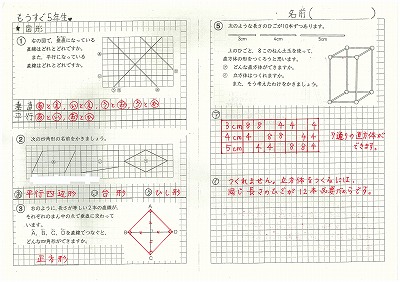 もうすぐ5年生♥
★図形
① 右の図で、垂直になっている
直線はどれとどれですか。
また、平行になっている
直線はどれとどれですか。
垂直
平行
② 次の四角形の名前をかきましょう。
平行四辺形
台形
ひし形
③ 右のように、長さが等しい2本の直線が、
それぞれのまん中の点で垂直に交わって
います。
A、B、C、Dを直線でつなぐと、
どんな四角形ができますか。
A
B
D
C
正方形
名前( )
⑤ 次のような長さのひごが10本ずつあります。
3cm 4cm 5cm
上のひごと、8こねん土玉を使って、
直方体の形をつくろうと思います。
どんな直方体ができますか。
立方体はつくれますか。
また、そう考えたわけをかきましょう。
3cm 8 8 4 4 4
4cm 4 8 8 4
5cm 4 4 8 8 4
7通りの直方体が
できます。
つくれません。立方体をつくるには、
同じ長さのひごが12本必要だからです。